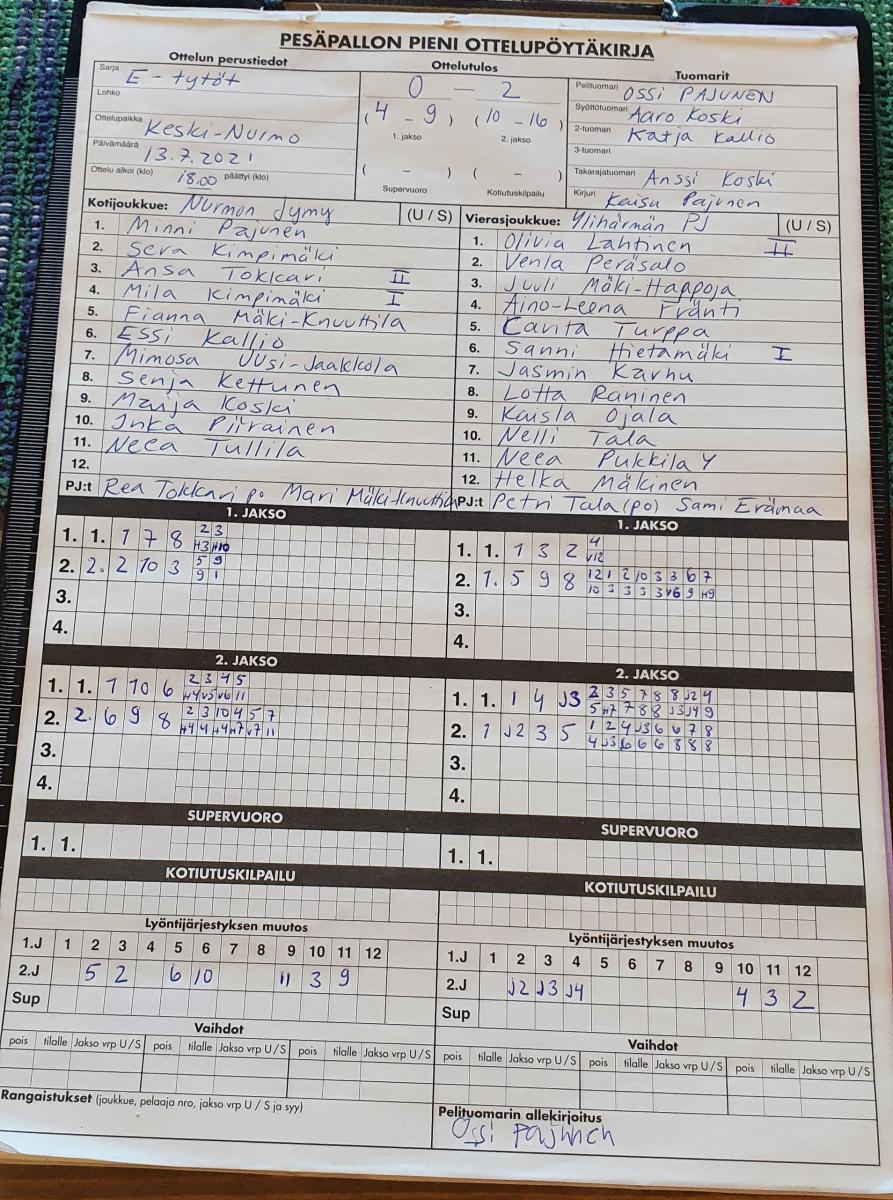 PESÄPALLON PIENI OTTELUPÖYTÄKIRJA
Ottelun perustiedot
Sarja E - tytöt
Lohko
Ottelupaikka Keski-Nurmo
Päivämäärä 13.7.2021
Ottelu alkoi (klo) 18.00 päättyi (klo)
Ottelutulos
0 — 2
(4 - 9) (10 - 16)
1. jakso 2. jakso
( - ) ( - )
Supervuoro Kotiutuskilpailu
Tuomarit
Pelituomari OSSI PAJUNEN
Syöttötuomari Aaro Koski
2-tuomari Katja Kallio
3-tuomari
Takarajatuomari Anssi Koski
Kirjuri Kaisu Pajunen
Kotijoukkue: Nurmon Jymy (U / S)
1. Minni Pajunen
2. Sera Kimpimäki
3. Ansa Tokkari II
4. Mila Kimpimäki I
5. Fianna Mäki-Knuuttila
6. Essi Kallio
7. Mimosa Uusi-Jaakkola
8. Senja Kettunen
9. Maija Koski
10. Inka Piirainen
11. Neea Tullila
12.
PJ:t Rea Tokkari po Mari Mäki-Knuuttila
Vierasjoukkue: Ylihärmän PJ (U / S)
1. Olivia Lahtinen II
2. Venla Peräsalo
3. Juuli Mäki-Happoja
4. Aino-Leena Fränti
5. Carita Turppa
6. Sanni Hietamäki I
7. Jasmin Karhu
8. Lotta Raninen
9. Kaisla Ojala
10. Nelli Tala
11. Neea Pukkila Y
12. Helka Mäkinen
PJ:t Petri Tala (po) Sami Erämaa
1. JAKSO
1. 1. 1 7 8 2 3
H3 H10
2. 2. 2 10 3 5 9
9 1
3.
4.
1. JAKSO
1. 1. 1 3 2 4
V12
2. 1. 5 9 8 12 1 2 10 3 3 6 7
10 3 3 3 3 V6 9 H9
3.
4.
2. JAKSO
1. 1. 1 10 6 2 3 4 5
H4 V5 V6 11
2. 2. 6 9 8 2 3 10 4 5 7
H4 4 H4 H7 V7 11
3.
4.
2. JAKSO
1. 1. 1 4 J3 2 3 5 7 8 8 J2 4
5 H7 7 8 8 J3 J4 9
2. 1 J2 3 5 1 2 4 J3 6 6 7 8
4 J3 6 6 6 8 8 8
3.
4.
SUPERVUORO
1. 1.
SUPERVUORO
1. 1.
KOTIUTUSKILPAILU
KOTIUTUSKILPAILU
Lyöntijärjestyksen muutos
1.J 1 2 3 4 5 6 7 8 9 10 11 12
2.J 5 2 6 10 11 3 9
Sup
Lyöntijärjestyksen muutos
1.J 1 2 3 4 5 6 7 8 9 10 11 12
2.J J2 J3 J4 4 3 2
Sup
Vaihdot
pois tilalle Jakso vrp U / S pois tilalle Jakso vrp U / S pois tilalle Jakso vrp U / S
Vaihdot
pois tilalle Jakso vrp U / S pois tilalle Jakso vrp U / S pois tilalle Jakso vrp U / S
Rangaistukset (joukkue, pelaaja nro, jakso vrp U / S ja syy)
Pelituomarin allekirjoitus
Ossi Pajunen